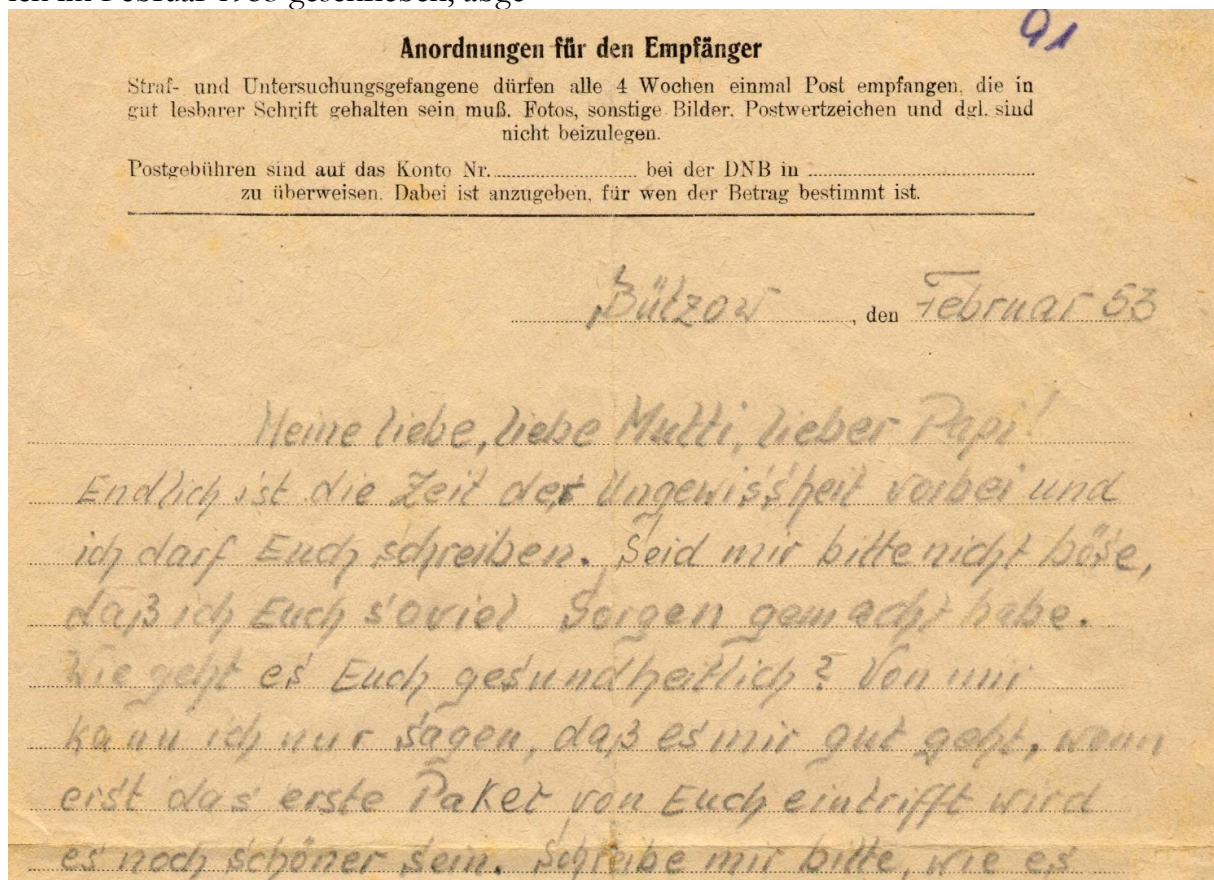 ich im Februar 1953 geschrieben, abge
91
Anordnungen für den Empfänger
Straf- und Untersuchungsgefangene dürfen alle 4 Wochen einmal Post empfangen, die in
gut lesbarer Schrift gehalten sein muß. Fotos, sonstige Bilder, Postwertzeichen und dgl. sind
nicht beizulegen.
Postgebühren sind auf das Konto Nr. bei der DNB in
zu überweisen. Dabei ist anzugeben, für wen der Betrag bestimmt ist.
Bützow, den Februar 53
Meine liebe, liebe Mutti, lieber Papi!
Endlich ist die Zeit der Ungewissheit vorbei und
ich darf Euch schreiben. Seid mir bitte nicht böse,
daß ich Euch soviel Sorgen gemacht habe.
Wie geht es Euch gesundheitlich? Von mir
kann ich nur sagen, daß es mir gut geht, wenn
erst das erste Paket von Euch eintrifft wird
es noch schöner sein. Schreibe mir bitte, wie es